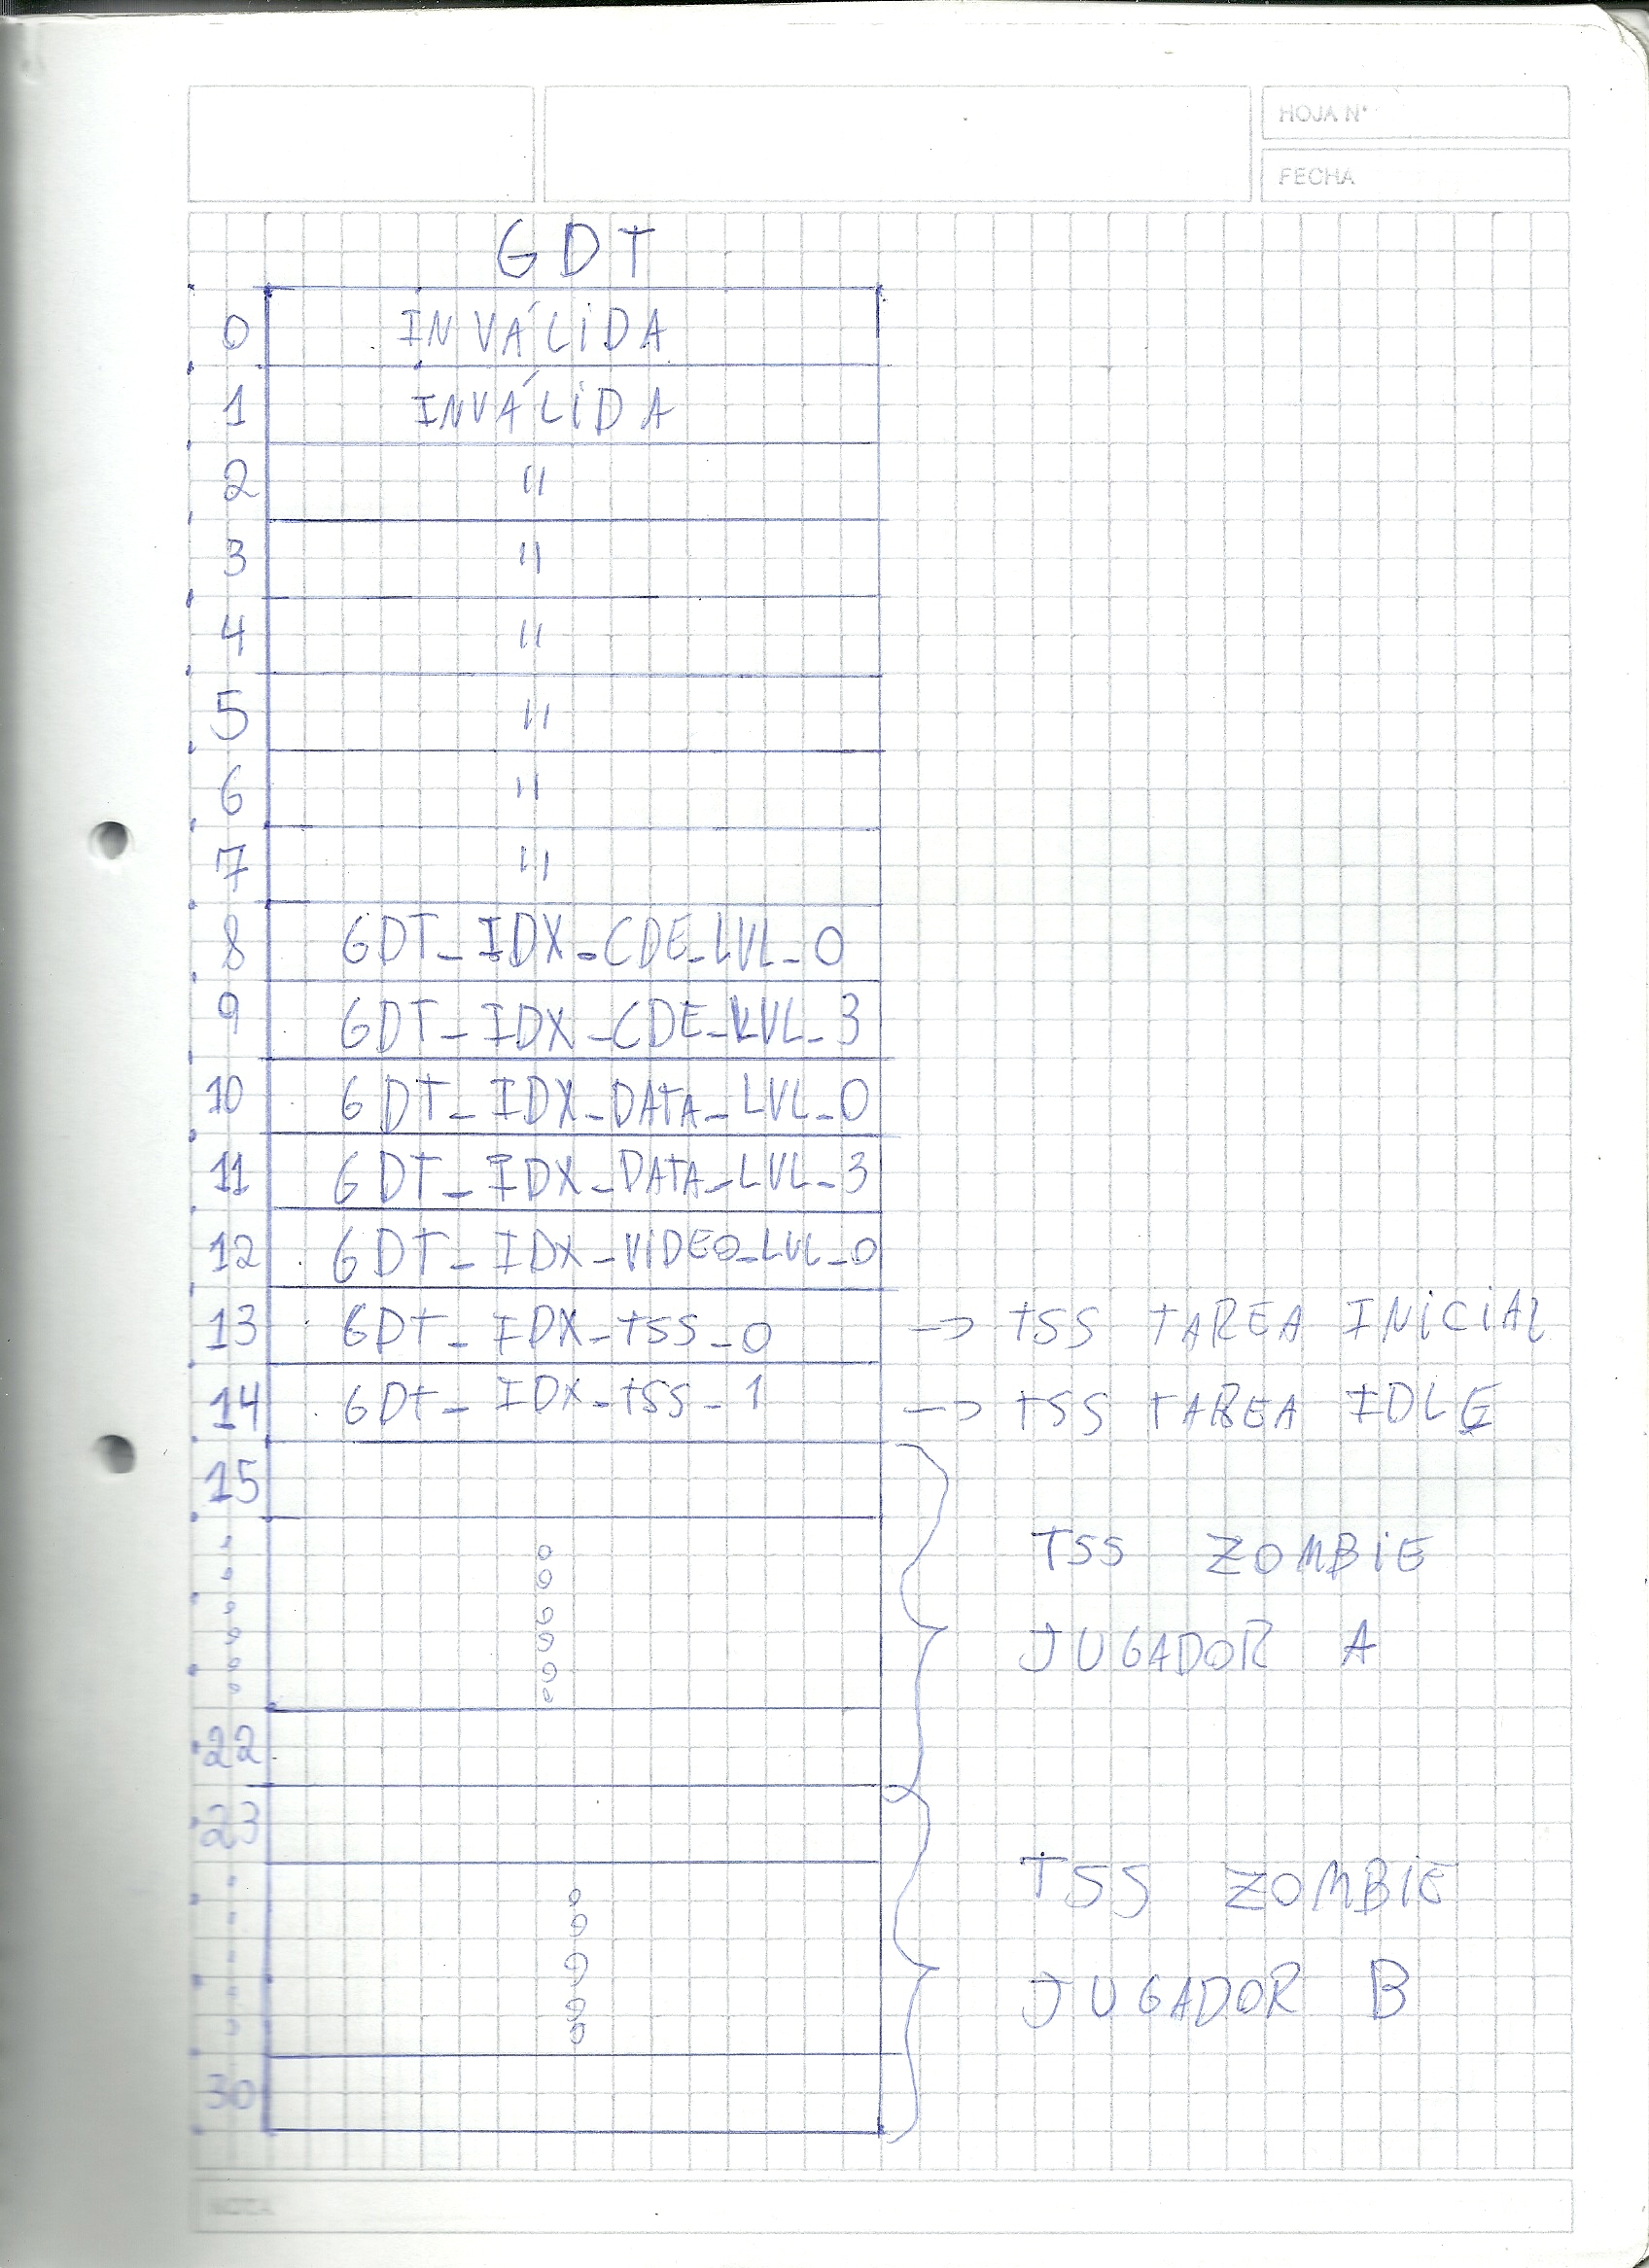 HOJA N°
FECHA
GDT
0 INVÁLIDA
1 INVÁLIDA
2 "
3 "
4 "
5 "
6 "
7 "
8 GDT_IDX_CDE_LVL_0
9 GDT_IDX_CDE_LVL_3
10 GDT_IDX_DATA_LVL_0
11 GDT_IDX_DATA_LVL_3
12 GDT_IDX_VIDEO_LVL_0
13 GDT_IDX_TSS_0 -> TSS TAREA INICIAL
14 GDT_IDX_TSS_1 -> TSS TAREA IDLE
15
TSS ZOMBIE
JUGADOR A
22
23
TSS ZOMBIE
JUGADOR B
30
NOTA